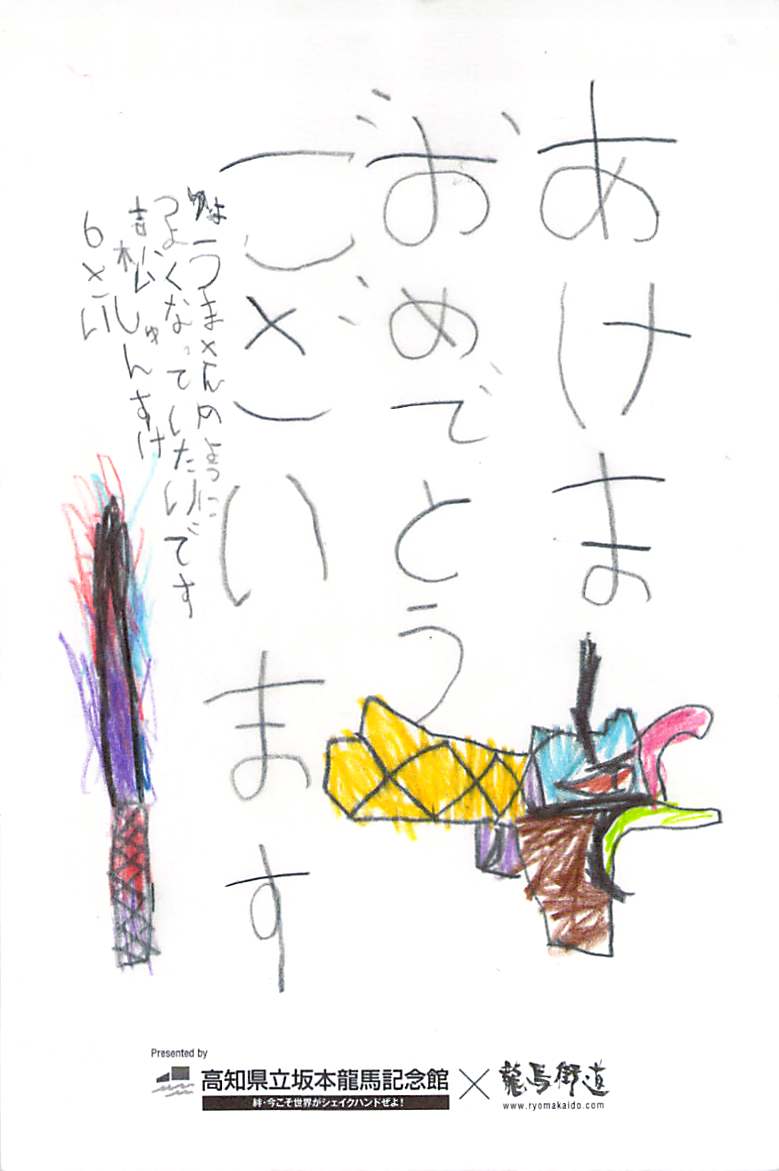 あけま
おめでとう
ございます
りょうまさんのように
つよくなっていたいです
吉松しゅんすけ
6さい
Presented by
高知県立坂本龍馬記念館×龍馬街道
絆・今こそ世界がシェイクハンドぜよ!
www.ryomakaido.com